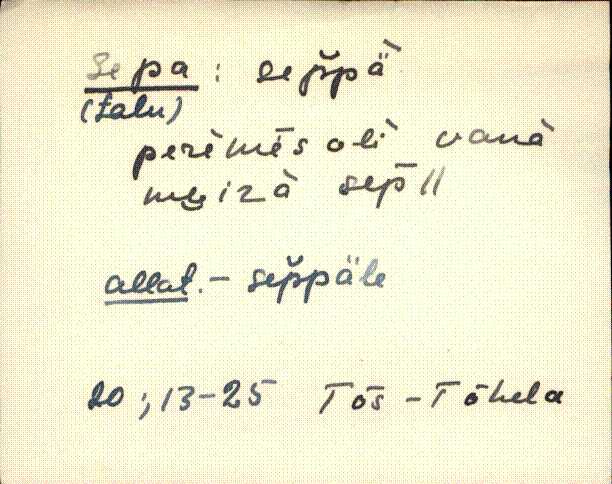 Sepa : sep̆pä̀
(talu)
perèmēs olì vanà
me̮izà sep̄ //
allat. – sep̆päle
20 ; 13-25 Tõs - Tõhela